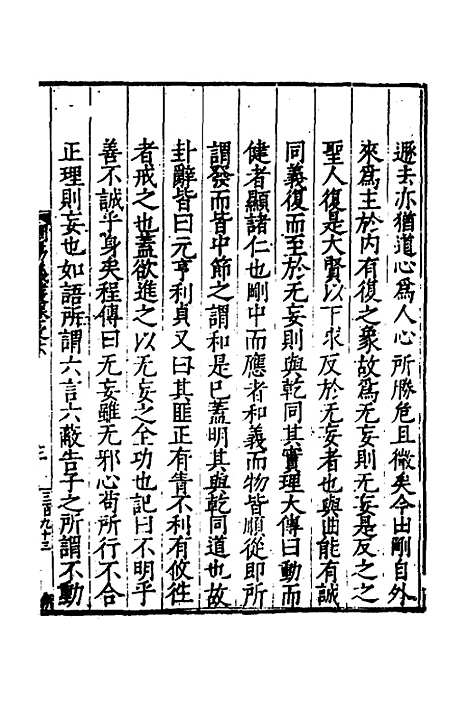 遯去亦猶道心爲人心所勝危且微矣今由剛自外
來爲主於內有復之象故爲无妄則无妄是反之之
聖人復是大賢以下求反於无妄者也與曲能有誠
同義復而至於无妄則與乾同其實理大傳曰動而
健者顯諸仁也剛中而應者和義而物皆順從即所
謂發而皆中節之謂和是已蓋明其與乾同道也故
卦辭皆曰元亨利貞又曰其匪正有眚不利有攸徃
者戒之也蓋欲進之以无妄之全功也記曰不明乎
善不誠乎身矣程傳曰无妄雖无邪心苟所行不合
正理則妄也如語所謂六言六蔽告子之所謂不動
三
三百九十三